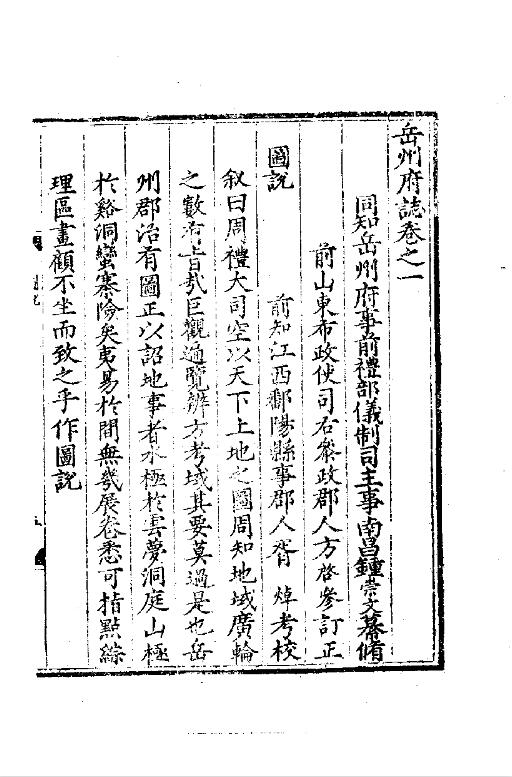 岳州府誌卷之一
同知岳州府事前禮部儀制司主事南昌鍾崇文纂脩
前山東布政使司右叅政郡人方啓參訂正
前知江西鄱陽縣事郡人胥焯考校
圖説
叙曰周禮大司空以天下土地之圖周知地域廣輪
之數君哉巨觀遍覽辨方考域其要莫過是也岳
州郡治有圖正以詔地事者水極於雲夢洞庭山極
於谿洞蠻寨險矣夷易於間無幾展卷悉可指點綜
理區畫顧不坐而致之乎作圖説